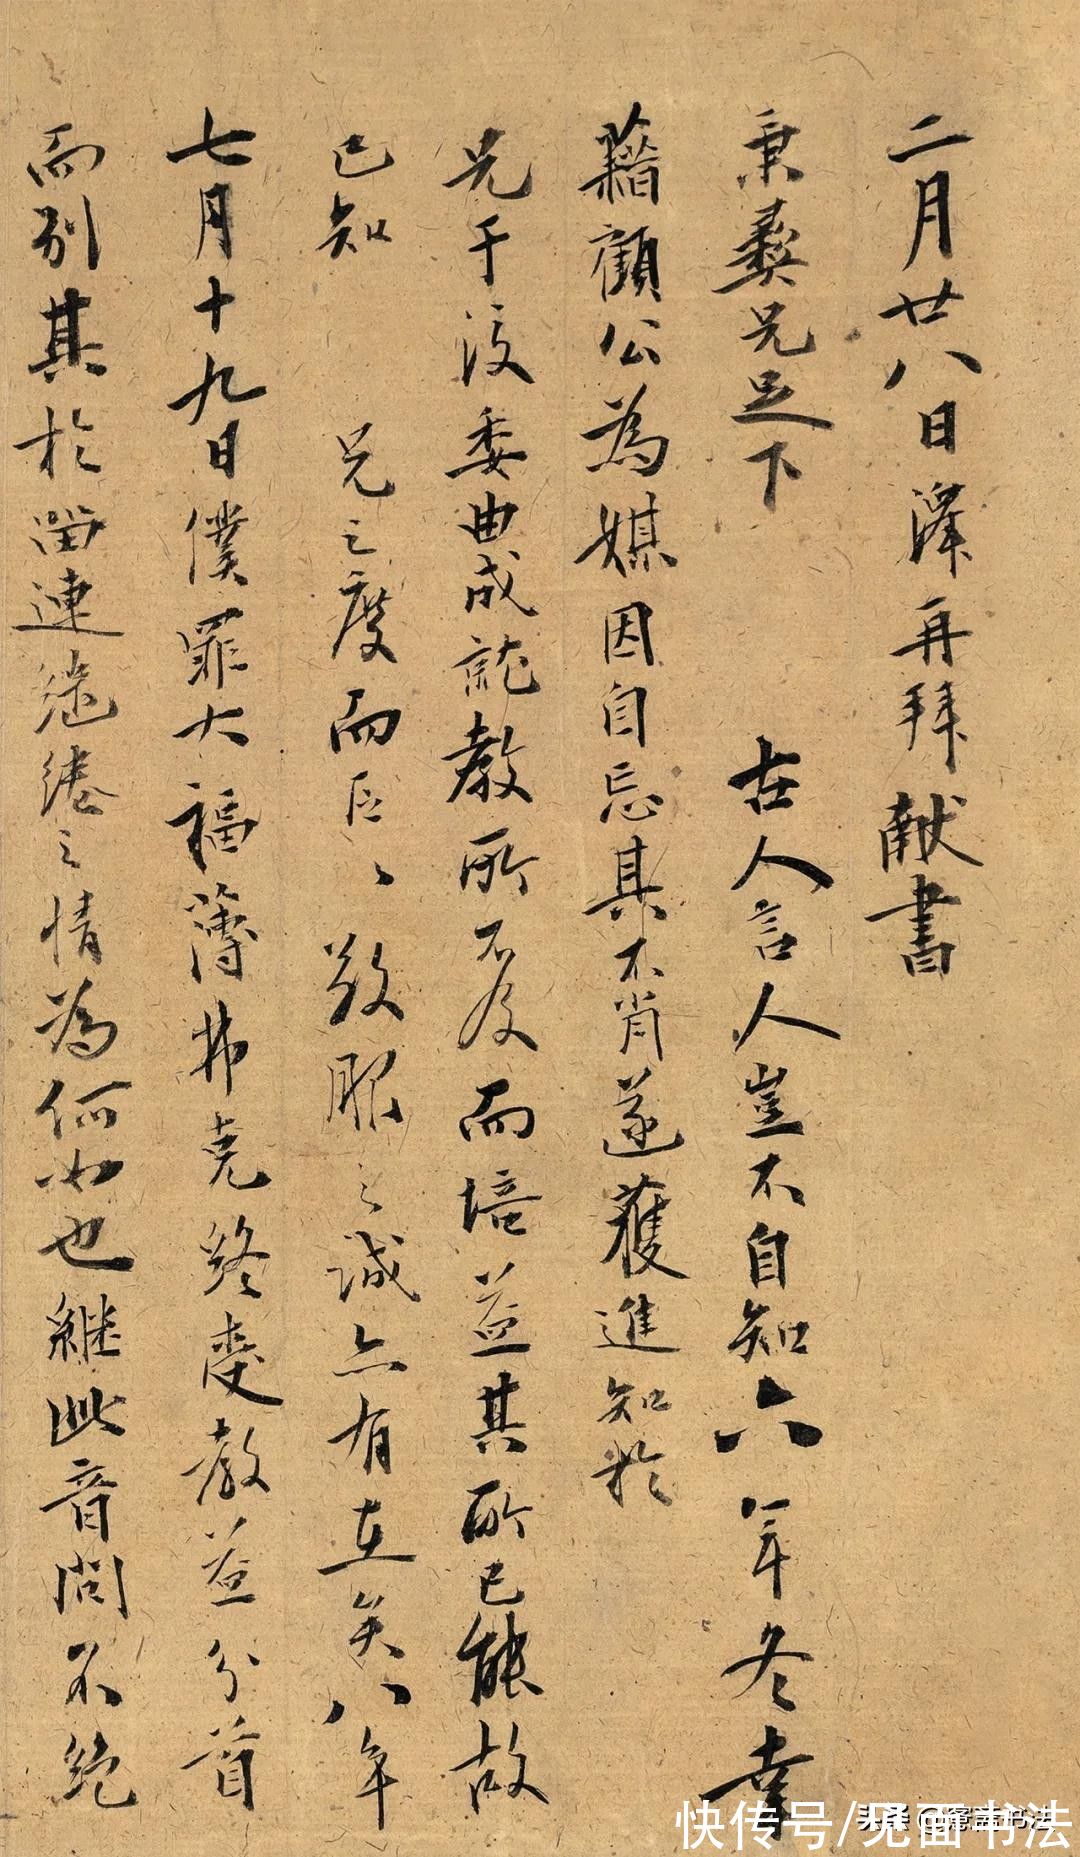 二月廿八日澤再拜獻書
秉彝兄足下 在人言人豈不自知六年冬幸
藉顧公為媒因自忘其不肖遂獲進知於
兄于後委曲成就教所不及而培益其所已能故
已知 兄之度而區〻敬服之誠亦有在矣八年
七月十九日僕罪大福薄弗克終受教益分首
而別其於留連繾綣之情為何如也繼此音問不絕
快传号/见面书法